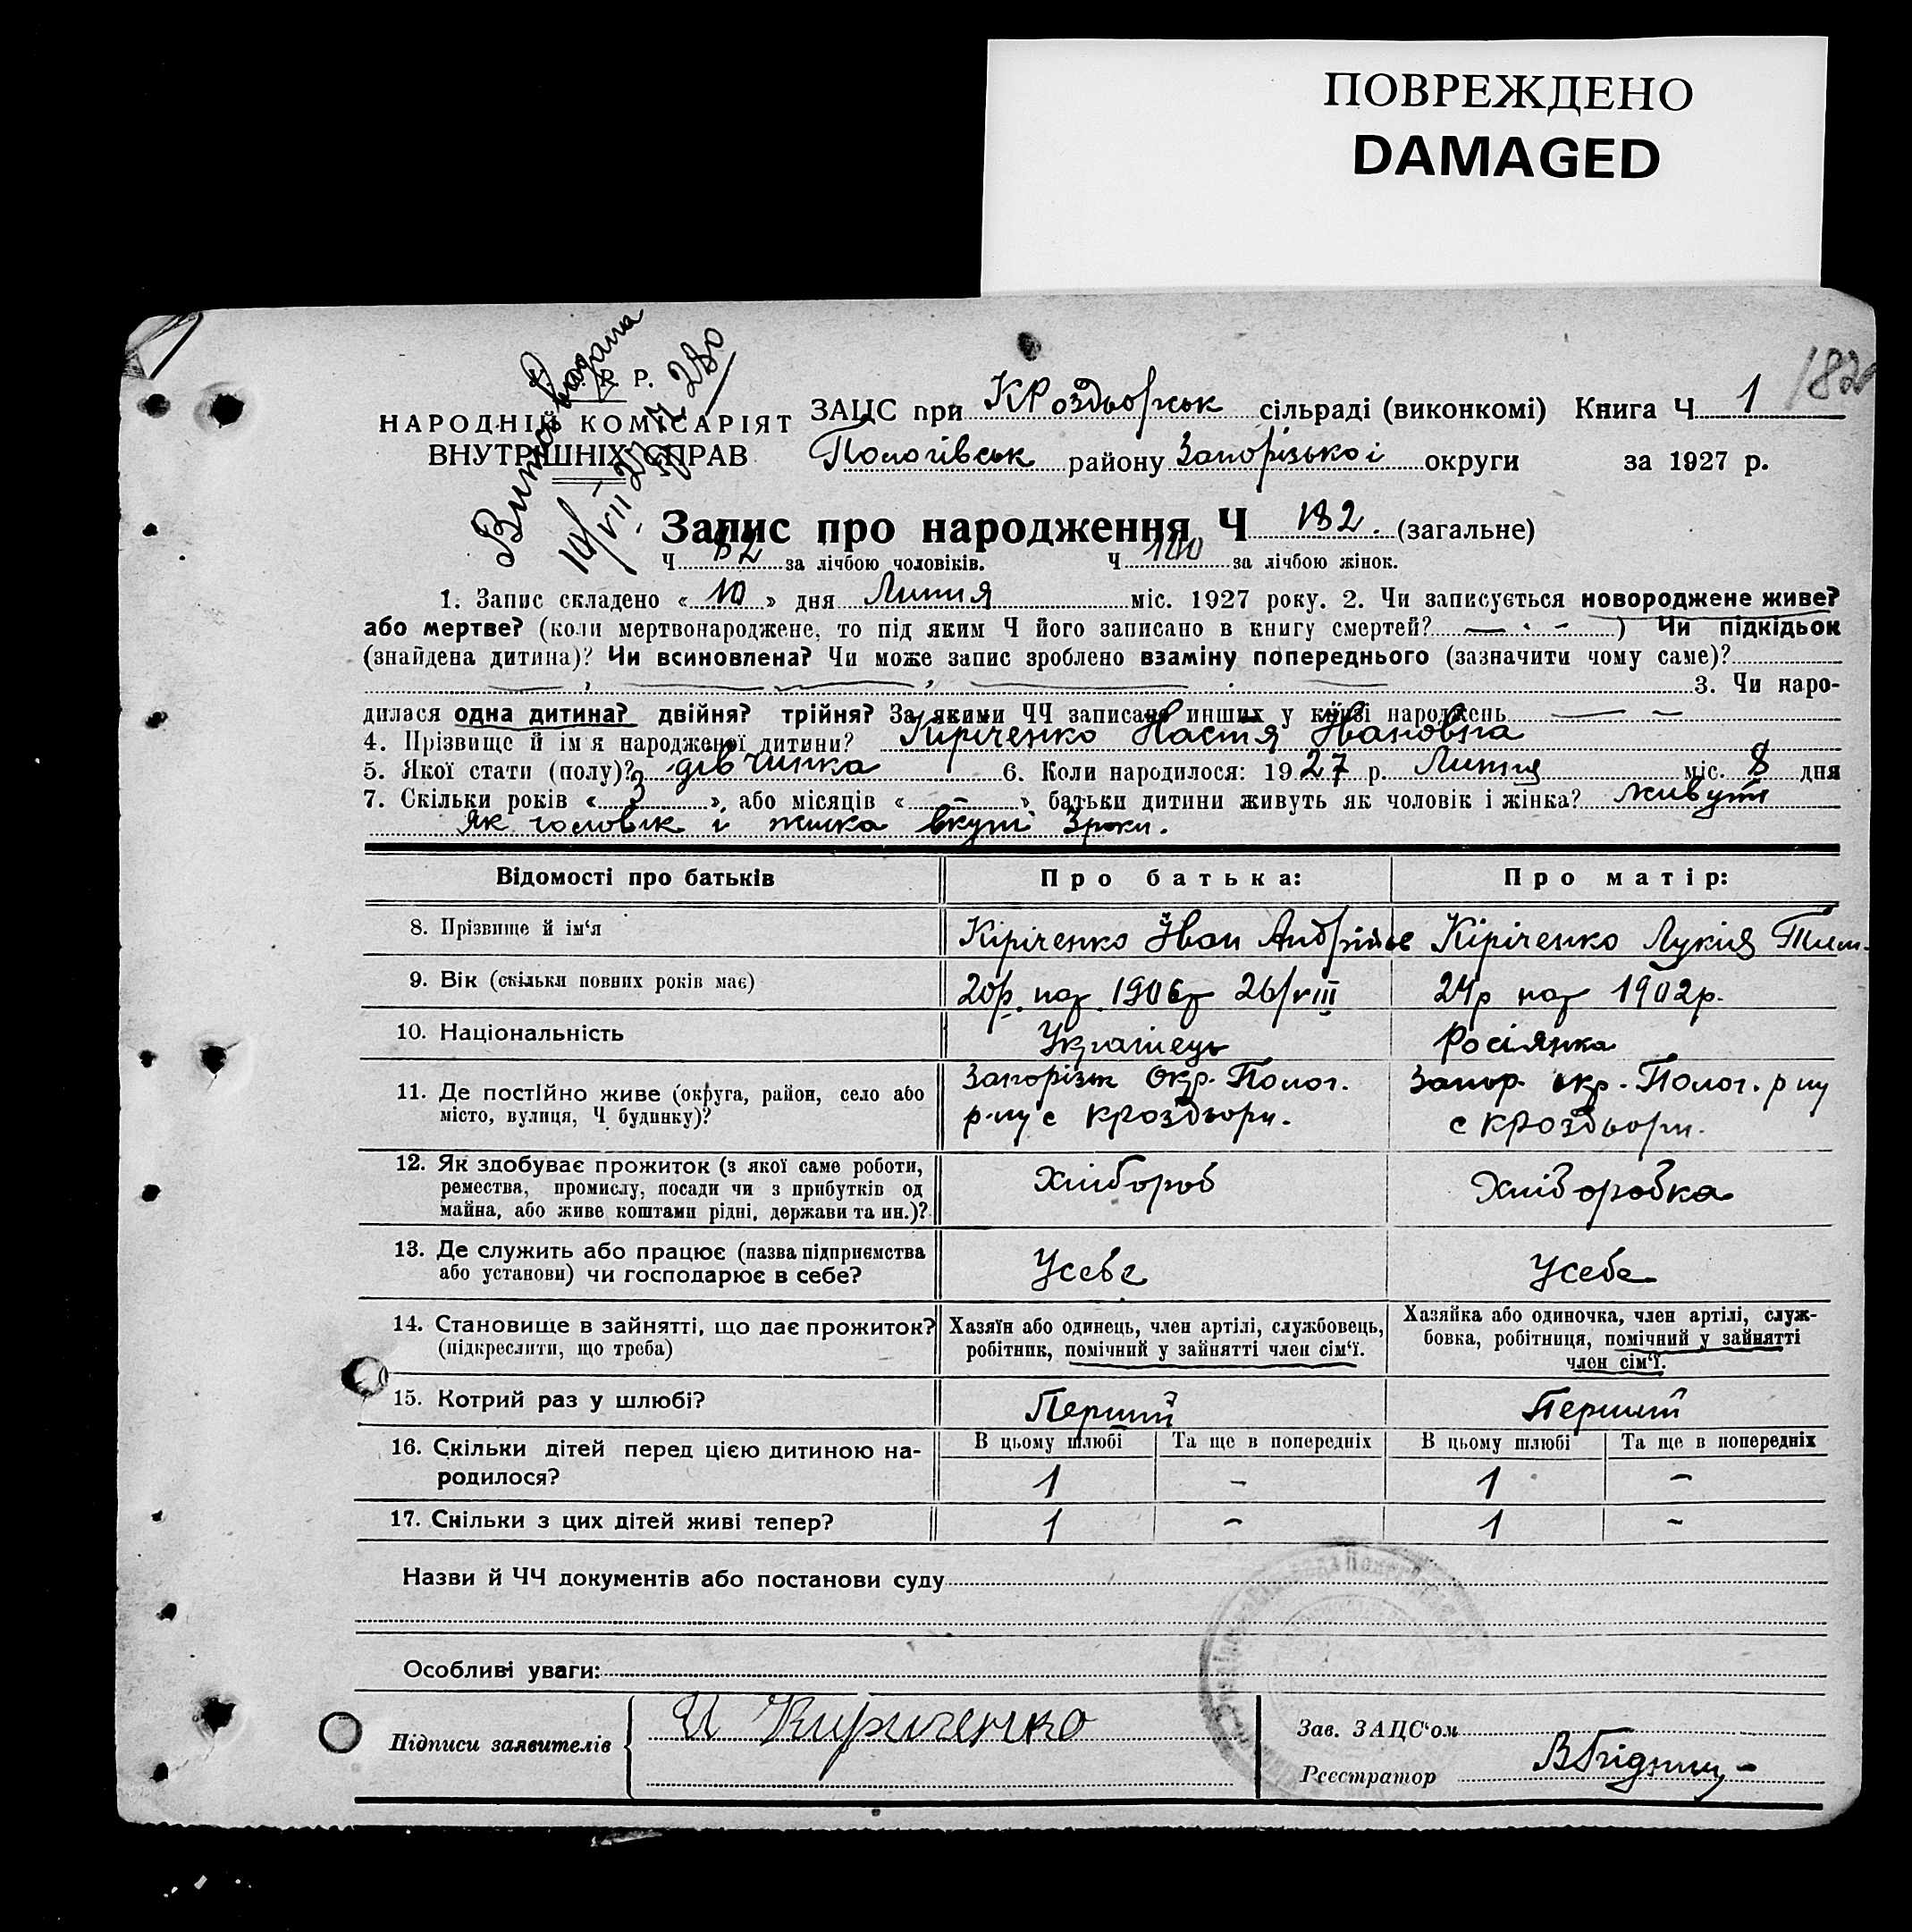 ПОВРЕЖДЕНО
DAMAGED
182
Р. Р.
НАРОДНІЙ КОМІСАРІЯТ
ВНУТРІШНІХ СПРАВ
Видана
10/VII 27
280
ЗАЦС при КРоздорськ сільраді (виконкомі) Книга Ч 1
Пологівськ району Запорізької округи за 1927 р.
Запис про народження Ч 182. (загальне)
Ч 82 за лічбою чоловіків. Ч 100 за лічбою жінок.
1. Запис складено « 10 » дня Липня міс. 1927 року. 2. Чи записується новороджене живе?
або мертве? (коли мертвонароджене, то під яким Ч його записано в книгу смертей? — · - ) Чи підкідьок
(знайдена дитина)? Чи всиновлена? Чи може запис зроблено взаміну попереднього (зазначити чому саме)?
3. Чи наро-
дилася одна дитина? двійня? трійня? За якими ЧЧ записано инших у книзі народжень — -
4. Прізвище й ім'я народженої дитини? Киріченко Настя Івановна
5. Якої стати (полу)? дівчинка 6. Коли народилося: 1927 р. Липня міс. 8 дня
7. Скільки років « 3 », або місяців « - » батьки дитини живуть як чоловік і жінка? живуть
як чоловік і жінка вкупі 3 роки.
Відомості про батьків Про батька: Про матір:
8. Прізвище й ім‘я Кіріченко Іван Андрійов Кіріченко Лукія Тим.
9. Вік (скільки повних років має) 20р. нар 1906р 26/VIII 24р нар 1902р.
10. Національність Українець Росіянка
11. Де постійно живе (округа, район, село або
місто, вулиця, Ч будинку)?
Запорізьк окр. Полог.
р-ну с КРоздори.
Запор. окр. Полог. р ну
с КРоздори.
12. Як здобуває прожиток (з якої саме роботи,
ремества, промислу, посади чи з прибутків од
майна, або живе коштами рідні, держави та ин.)?
Хлібороб Хліборобка
13. Де служить або працює (назва підприємства
або установи) чи господарює в себе?
Усебе Усебе
14. Становище в зайнятті, що дає прожиток?
(підкреслити, що треба)
Хазяїн або одинець, член артілі, службовець,
робітник, помічний у зайнятті член сім‘ї.
Хазяйка або одиночка, член артілі, служ-
бовка, робітниця, помічний у зайнятті
член сім‘ї.
15. Котрий раз у шлюбі? Перший Перший
16. Скільки дітей перед цією дитиною на-
родилося?
В цьому шлюбі Та ще в попередніх В цьому шлюбі Та ще в попередніх
1 - 1 -
17. Скільки з цих дітей живі тепер? 1 - 1 -
Назви й ЧЧ документів або постанови суду
Особливі уваги:
Підписи заявителів И Кириченко
Зав. ЗАЦС‘ом
Реєстратор